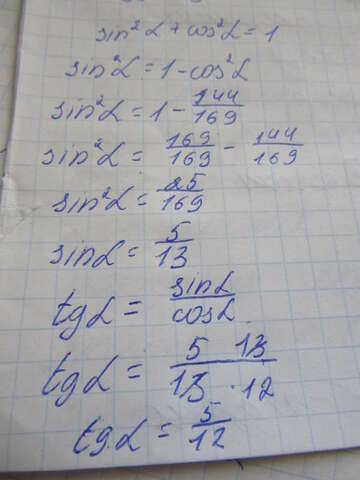 sin²α + cos²α = 1
sin²α = 1 - cos²α
sin²α = 1 - 144/169
sin²α = 169/169 - 144/169
sin²α = 25/169
sinα = 5/13
tgα = sinα/cosα
tgα = 5 13/13 · 12
tg.α = 5/12